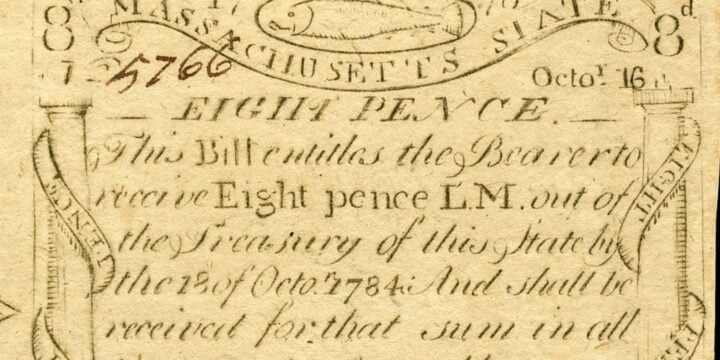 8d 17 78 8d
MASSACHUSETTS STATE
5766
Octor. 16
EIGHT PENCE.
This Bill entitles the Bearer to
receive Eight pence L.M. out of
the Treasury of this State by
the 18 of Octor. 1784. And shall be
received for that sum in all
PENCE
EIGHT